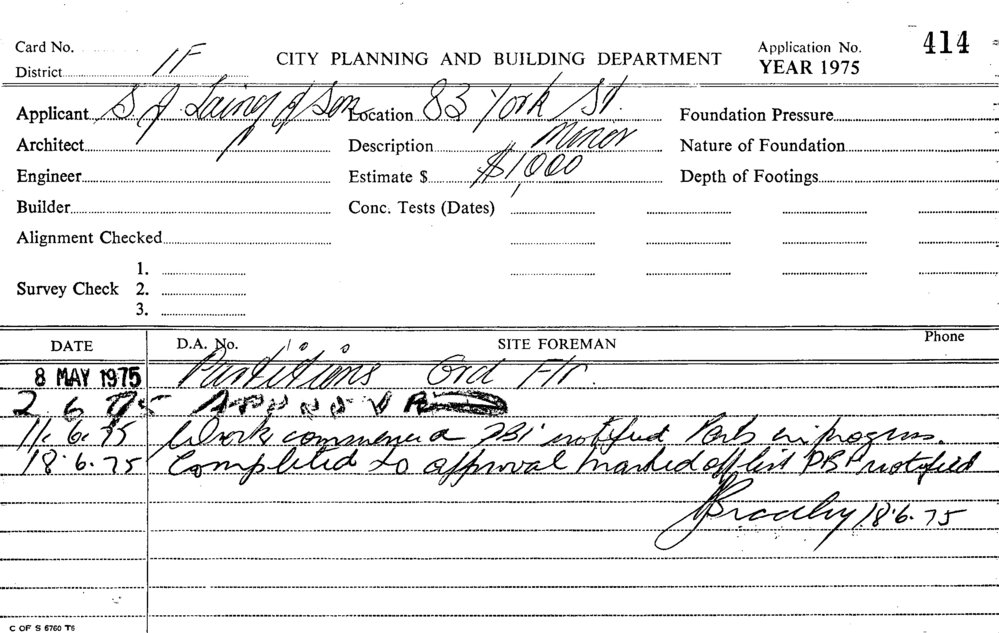 Card No.
District 1F
CITY PLANNING AND BUILDING DEPARTMENT
Application No. 414
YEAR 1975
Applicant S. J. & Son
Location 83 York St.
Foundation Pressure
Architect
Description Minor
Nature of Foundation
Engineer
Estimate $ $1,000
Depth of Footings
Builder
Conc. Tests (Dates)
Alignment Checked
Survey Check
1.
2.
3.
DATE
D.A. No.
SITE FOREMAN
Phone
8 MAY 1975 Partitions Grd Flr.
2 6 75 APPROVED
11. 6. 75 Work commenced PBI notified in progress.
18. 6. 75 Completed to approval marked off list PBI notified
18. 6. 75
C OF S 6760 T6